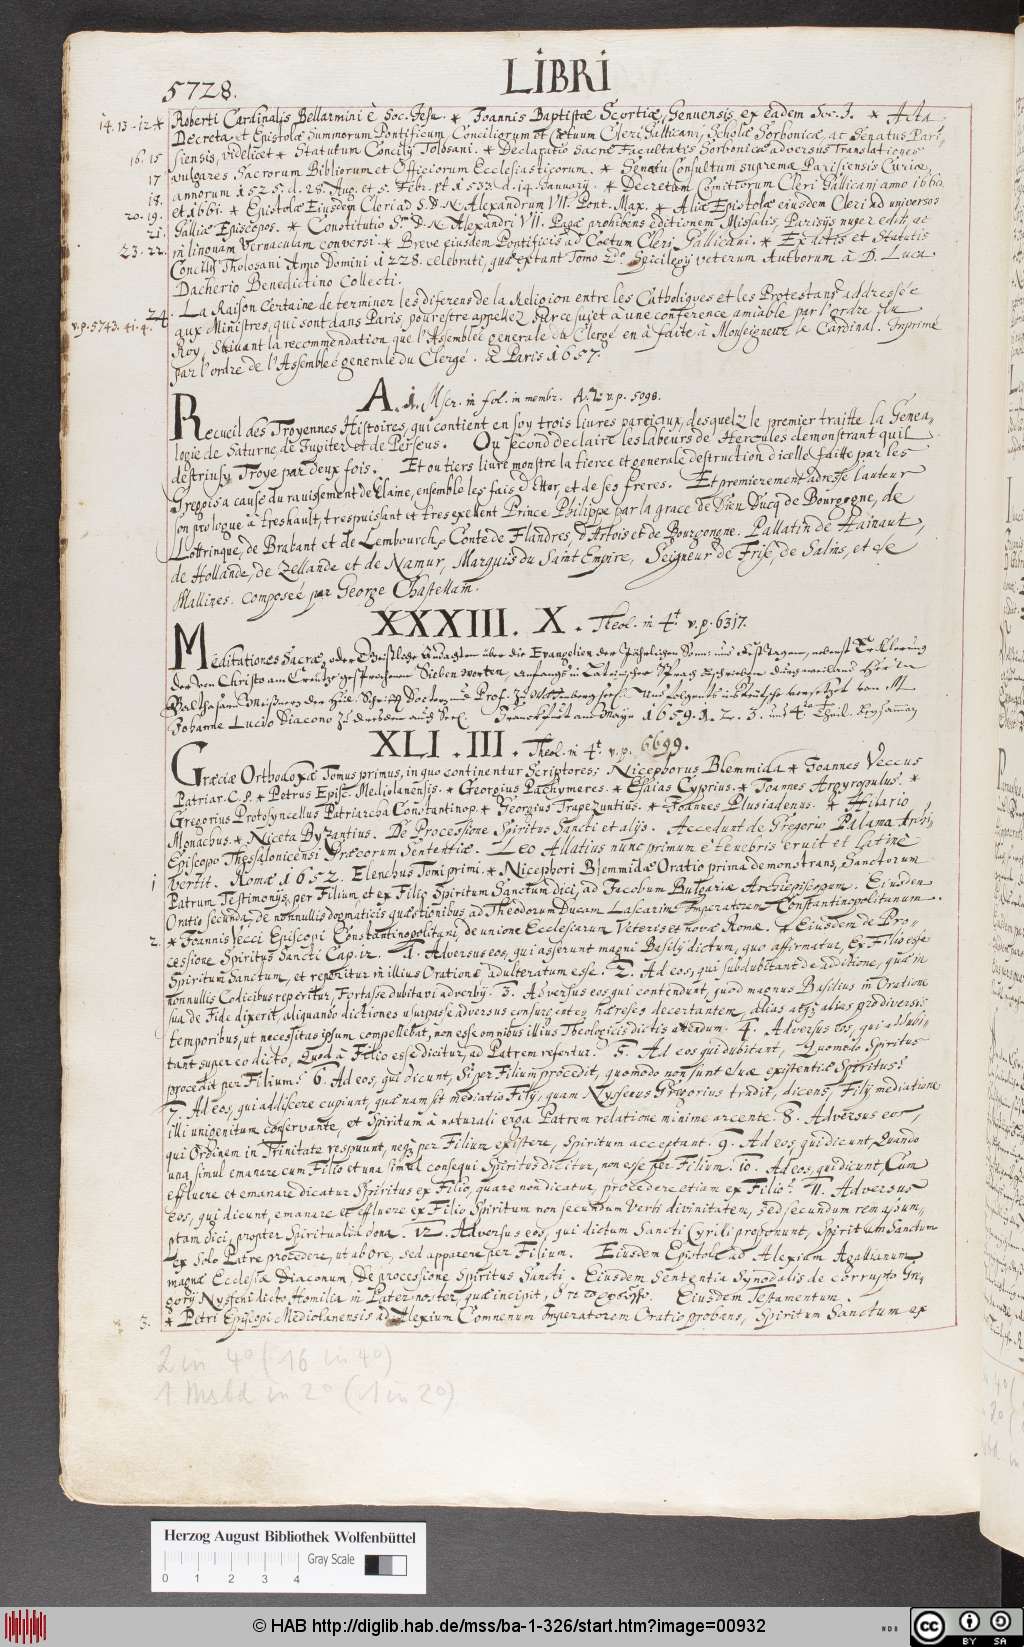 5728.
LIBRI
14. 13. 12 * Roberti Cardinalis Bellarmini è Soc. Jesu. * Joannis Baptistæ Scortiæ, Genuensis ex eadem Soc. J. * Acta
Decreta et Epistolæ Summorum Pontificum Conciliorum et Cœtuum Cleri Gallicani, Scholæ Sorbonicæ, ac Senatus Pari,,
16. 15 siensis, videlicet * Statutum Concilij Tolosani. * Declaratio Sacræ Facultatis Sorbonicæ adversus Translationes
17 vulgares Sacrorum Bibliorum et Officiorum Ecclesiasticorum. * Senatus Consultum supremæ Parisiensis Curiæ,
18. annorum 1525. d. 28. Aug. et 5. Febr. et 1533. d. 14. Januarij. * Decretum Comitiorum Cleri Gallicani anno 1660.
20. 19. et 1661. * Epistola Eiusdem Cleri ad S. D. N. Alexandrum VII. Pont. Max. * Aliæ Epistolæ eiusdem Cleri ad universos
21. Galliæ Episcopos. * Constitutio S.mi D. N. Alexandri VII. Papæ prohibens editionem Missalis, Parisijs nuper editi, ac
23. 22. in linguam Vernaculam conversi. * Breve eiusdem Pontificis ad Coetum Cleri Gallicani. * Ex actis et Statutis
Concilij Tholosani Anno Domini 1228. celebrati, quæ extant Tomo 2do Spicilegij veterum Authorum à D. Luca
Dacherio Benedictino Collecti.
24. La Raison Certaine de terminer les diferens de la Religion entre les Catholiques et les Protestans addressée
v. p. 5743. 41. 4. aux Ministres, qui sont dans Paris pour estre appellez sur ce sujet à une conference amiable par l'ordre du
Roy, Suivant la recommendation que l'Assemblée generale du Clergé en a faite à Monseigneur le Cardinal. Imprimé
par l'ordre de l'Assemblée generale du Clergé. à Paris 1657.
A. 1. Mscr. in fol. in membr. A. 2. v. p. 5098.
Recueil des Troyennes Histoires, qui contient en soy trois livres parciaux, desquelz le premier traitte la Genea,,
logie de Saturne, de Jupiter et de Perseus. Ou second declaire les labeurs de Hercules demonstrant quil
destruisy Troye par deux fois. Et ou tiers livre monstre la tierce et generale destruction dicelle faitte par les
Gregois a cause du ravissement de Elaine, ensemble les fais d'Ettor, et de ses freres. Et premierement adresse l'auteur
son prologue à treshault, trespuissant et tres exellent Prince Philippe par la grace de Dieu Ducq de Bourgogne, de
Lottrinque, de Brabant et de Lembourch, Conte de Flandres, d'Artois et de Bourgongne. Pallatin de Hainaut,
de Hollande, de Zellande et de Namur, Marquis du Saint Empire, Seigneur de Frise, de Salins, et de
Mallines. composeé par George Chastellain.
XXXIII. X. Theol. in 4t. v. p. 6317.
Meditationes Sacræ, oder Geistliche Andachten über die Evangelien der Jährlichen Sonn- und Festtagen, nebenst Erklärung
der von Christo am Creutze gesprochenen Sieben worten, Anfangs in Lateinischer Sprach geschrieben durch weiland Herrn
Balthasarn Meißnern der Heil. Schrifft Doctorn und Prof. zu Wittenberg Und in teutsche versetzet von M.
Johanne Lucio Diacono zu dresden auch Franckfurt am Mayn 1659. 1. 2. 3. und 4.te Theil. beysammen
XLI. III. Theol. in 4t. v. p. 6699.
Græciæ Orthodoxæ Tomus primus, in quo continentur Scriptores; Nicephorus Blemmida * Joannes Veccus
Patriar. C. P. * Petrus Episc. Mediolanensis. * Georgius Pachymeres. * Esaias Cyprius. * Joannes Argyropulus. *
Gregorius Protosyncellus Patriarcha Constantinop. * Georgius Trapezuntius. * Joannes Plusiadenus. * Hilario
Monachus. * Niceta Byzantius. De Processione Spiritus Sancti et alijs. Accedunt de Gregorio Palama Archi,,
Episcopo Thessalonicensi Græcorum Sententiæ. Leo Allatius nunc primum è tenebris eruit et Latinè
1 vertit. Romæ 1652. Elenchus Tomi primi. * Nicephori Blemmidæ Oratio prima demonstrans, Sanctorum
Patrum Testimonijs, per Filium et ex Filio Spiritum Sanctum dici, ad Jacobum Bulgariæ Archiepiscopum. Eiusdem
Oratio secunda, de nonnullis dogmaticis quæstionibus ad Theodorum Ducam Lascarim Imperatorem Constantinopolitanum.
2. * Joannis Vecci Episcopi Constantinopolitani, de unione Ecclesiarum Veteris et novæ Romæ. * Eiusdem de Pro,,
cessione Spiritus Sancti Cap. 12. 1. Adversus eos, qui asserunt magni Basilij dictum, quo affirmatur, Ex Filio esse
Spiritum Sanctum, et reperitur in illius Oratione adulteratum esse. 2. Ad eos, qui subdubitant de additione, quæ in
nonnullis Codicibus reperitur, Fortasse dubitavi adverbij. 3. Adversus eos, qui contendunt, quod magnus Basilius in Oratione
sua de Fide dixerit, aliquando dictiones usurpasse adversus consurgentes hæreses decertantem, alias atq3 alias pro diversis
temporibus, ut necessitas ipsum compellebat, non esse omnibus illius Theologicis dictis credendum. 4. Adversus eos, qui addubi,,
tant super eo dicto, Quod à Filio esse dicitur, ad Patrem refertur. 5. Ad eos qui dubitant, Quomodo Spiritus
procedit per Filium? 6. Ad eos, qui dicunt, Si per Filium procedit, quomodo non sunt duæ existentiæ Spiritus?
7. Ad eos, qui addiscere cupiunt, quænam sit mediatio Filij, quam Nyssenus Gregorius tradit, dicens, Filij mediatione
illi unigenitum conservante, et Spiritum à naturali erga Patrem relatione minime arcente. 8. Adversus eos,
qui Ordinem in Trinitate respuunt, neq3 per Filium existere, Spiritum acceptant. 9. Ad eos, qui dicunt, Quando
una simul emanare cum Filio et una simul consequi Spiritus dicitur, non esse per Filium. 10. Ad eos, qui dicunt, Cum
effluere et emanare dicatur Spiritus ex Filio, quare non dicatur, procedere etiam ex Filio? 11. Adversus
eos, qui dicunt, emanare et effluere ex Filio Spiritum non secundum Verbi divinitatem, sed secundum rem ipsam,,
ptam dici, propter Spiritualia dona. 12. Adversus eos, qui dictum Sancti Cyrilli proponunt, Spiritum Sanctum
ex solo Patre procedere, ut ab ore, sed apparere per Filium. Eiusdem Epistola ad Alexiam Agallianum
magnæ Ecclesiæ Diaconum, De processione Spiritus Sancti. Eiusdem Sententia Synodalis de corrupto Gre,,
gorij Nysseni dicto Homilia in Pater noster, quæ incipit, Eiusdem Testamentum.
3. * Petri Episcopi Mediolanensis ad Alexium Comnenum Imperatorem Oratio probans, Spiritum Sanctum ex
2 in 4° (:16 in 4°)
1 Msbd in 2° (1 in 2°)
Herzog August Bibliothek Wolfenbüttel
Gray Scale
0 1 2 3 4
© HAB http://diglib.hab.de/mss/ba-1-326/start.htm?image=00932
cc BY SA